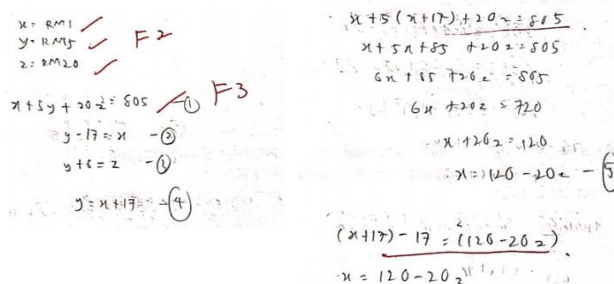 x = RM1
y = RM5
z = RM20
F2
x + 5y + 20z = 805 - ①
F3
y - 17 = x - ②
y + 6 = z - ③
y = x + 17 - ④
x + 5(x+17) + 20z = 805
x + 5x + 85 + 20z = 805
6x + 85 + 20z = 805
6x + 20z = 720
x + 20z = 120
x = 120 - 20z - ⑤
(x+17) - 17 = (120 - 20z)
x = 120 - 20z